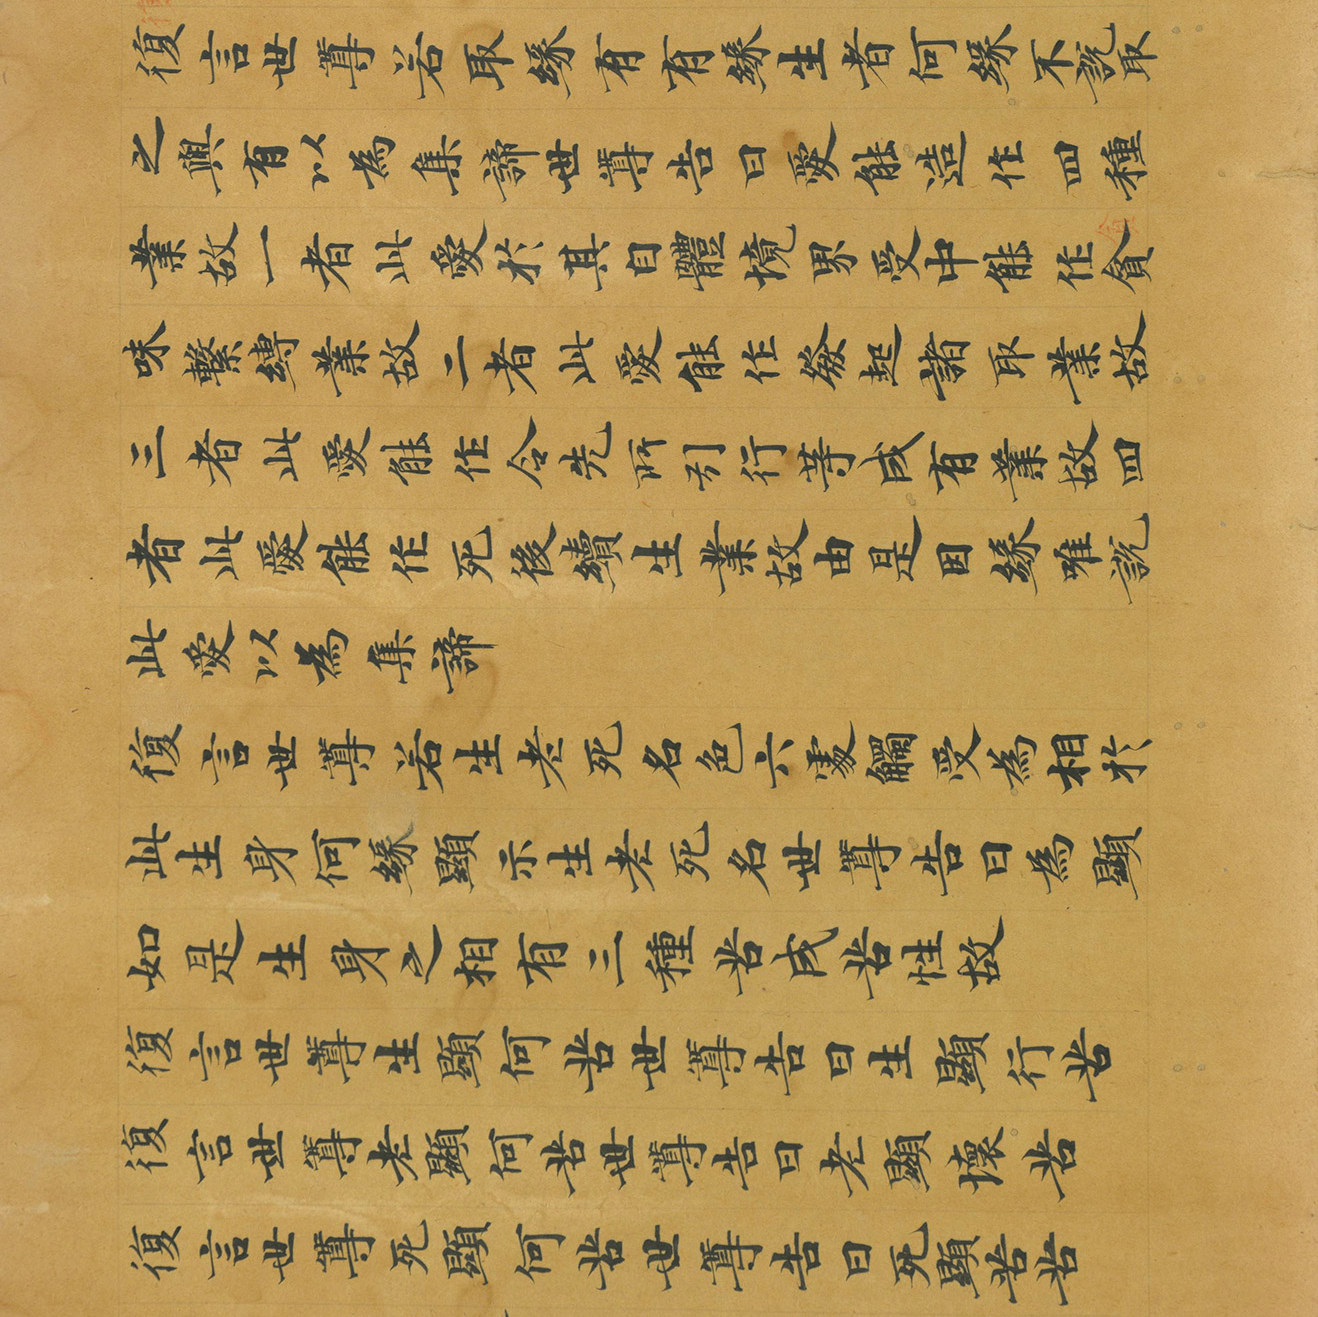 復言世尊若取緣有有緣生者何緣不說取
之與有以為集諦世尊告曰愛能造作四種
業故一者此愛於其自體境界受中能作貪
味繫縛業故二者此愛能作發起諸取業故
三者此愛能作令先所引行等成有業故四
者此愛能作死後續生業故由是因緣唯說
此愛以為集諦
復言世尊若生老死名色六處觸受為相於
此生身何緣顯示生老死名世尊告曰為顯
如是生身之相有三種苦成苦性故
復言世尊生顯何苦世尊告曰生顯行苦
復言世尊老顯何苦世尊告曰老顯壞苦
復言世尊死顯何苦世尊告曰死顯苦苦